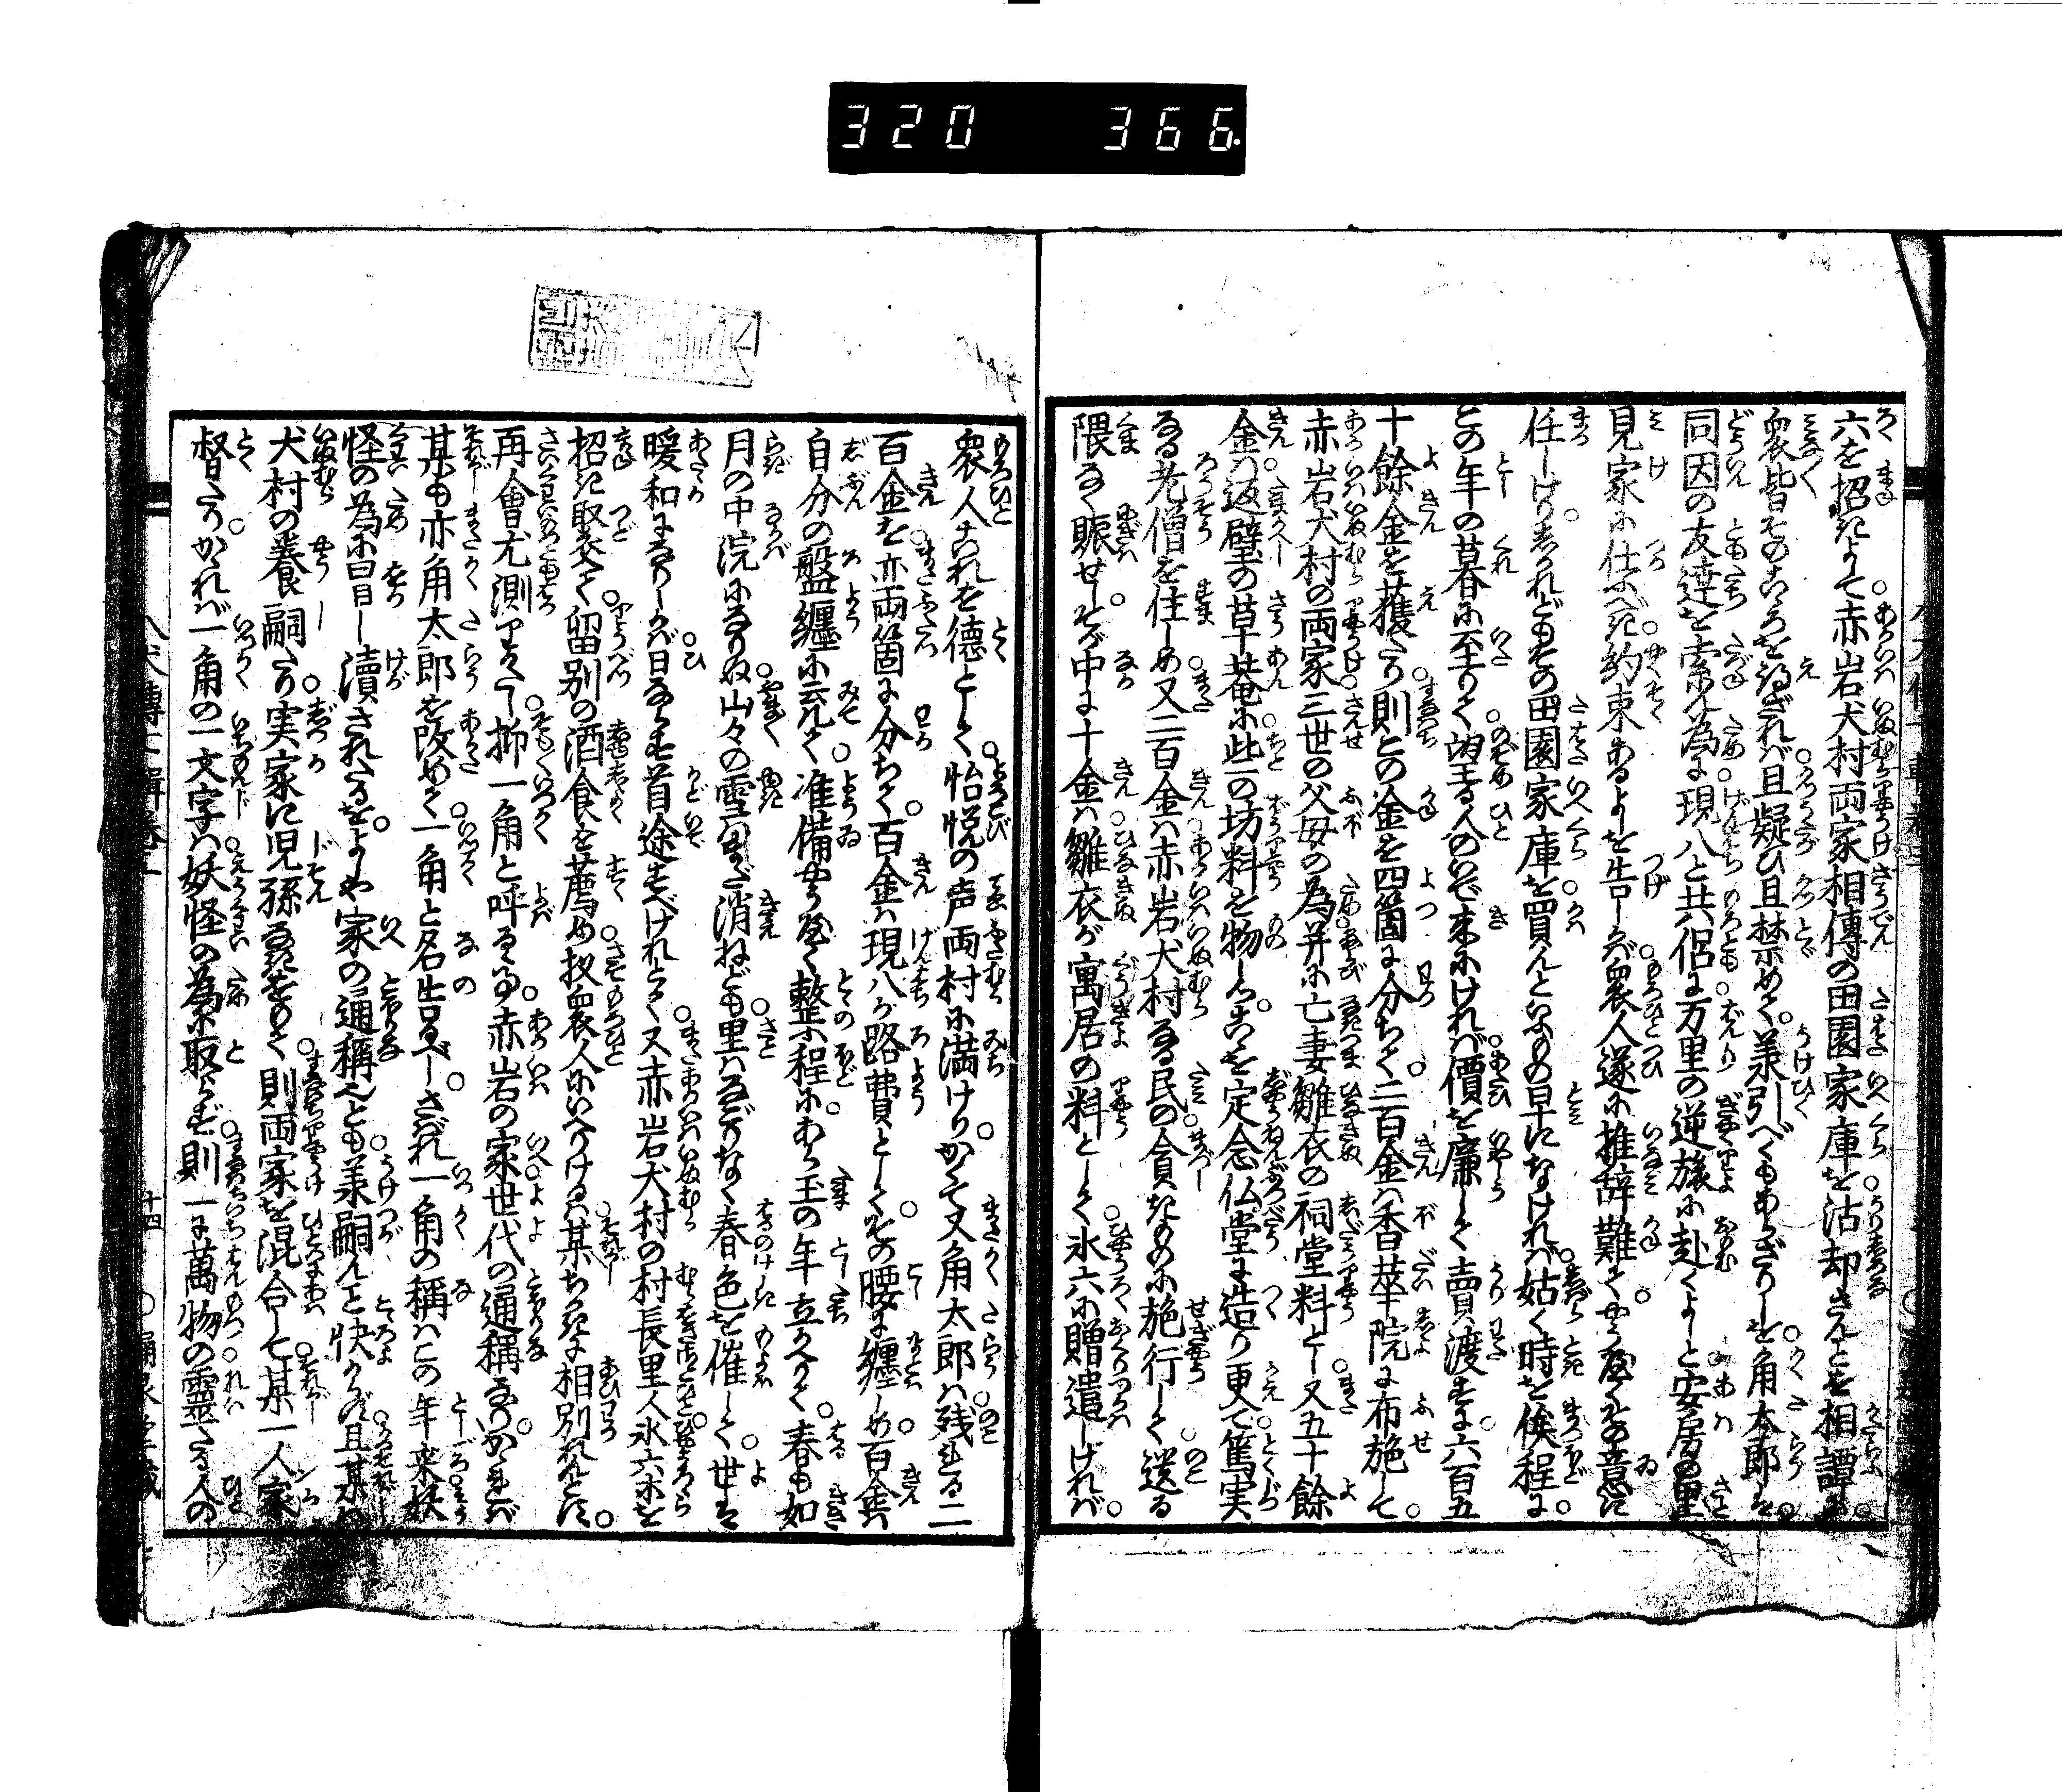 320 366.
六を招きよせて赤岩犬村両家相傳の田園家庫を沽却せんとを相譚ふ
衆皆そのこゝろを得ざれば且疑ひ且禁めて兼引べくもあらざりしを角太郎は
同因の友達を索ん為に現八と共侶に万里の逆旅に赴くよしと安房の里
見家に仕ふべき約束あるよしを告しかば衆人遂に推辞難てやうやくその意に
任しけりしかれどもその田園家庫を買んといふもの早になければ姑く時を俟程に
この年の暮に至りて望む人のいで来にければ價を廉して賣渡すに六百五
十餘金を獲たり則この金を四箇に分ちて二百金は香華院に布施して
赤岩犬村の両家三世の父母の為并に亡妻雛衣の祠堂料とし又五十餘
金は返璧の草菴に些の坊料を物しらこゝを定念仏堂に造り更て篤実
なる老僧を住しめ又二百金は赤岩犬村なる民の貧きものに施行して遺る
隈なく賑せしそが中に十金は雛衣が寓居の料として氷六に贈遣しければ
衆人これを徳として怡悦の声両村に満けりかくて又角太郎は残れる二
百金を亦両箇に分ちて百金は現八が路費としてその腰に纏しめ百金は
自分の盤纏にみてて准備やうやく整ふ程にあら玉の年立かへりて春も如
月の中浣になりぬ山々の雪はまだ消ねども里はなごりなく春色を催して世は
暖和になりしかば日ならず首途すべけれとて又赤岩犬村の村長里人氷六等を
招き聚合て留別の酒食を薦め扨衆人にいへりけるは某ちかきに相別れんとに
再會尤測りがたし抑一角と呼るゝ事赤岩の家世代の通稱なりかゝれば
某も亦角太郎を改めて一角と名告るべしされば一角の稱はこの年来妖
怪の為に曰ー瀆されたるをよや家の通稱也とも兼嗣んと快からず且某は
犬村の養嗣たり実家に児孫なきをもて則両家を混合して某一人家
督たりかれば一角の一文字は妖怪の為に取らず則一は萬物の霊たる人の